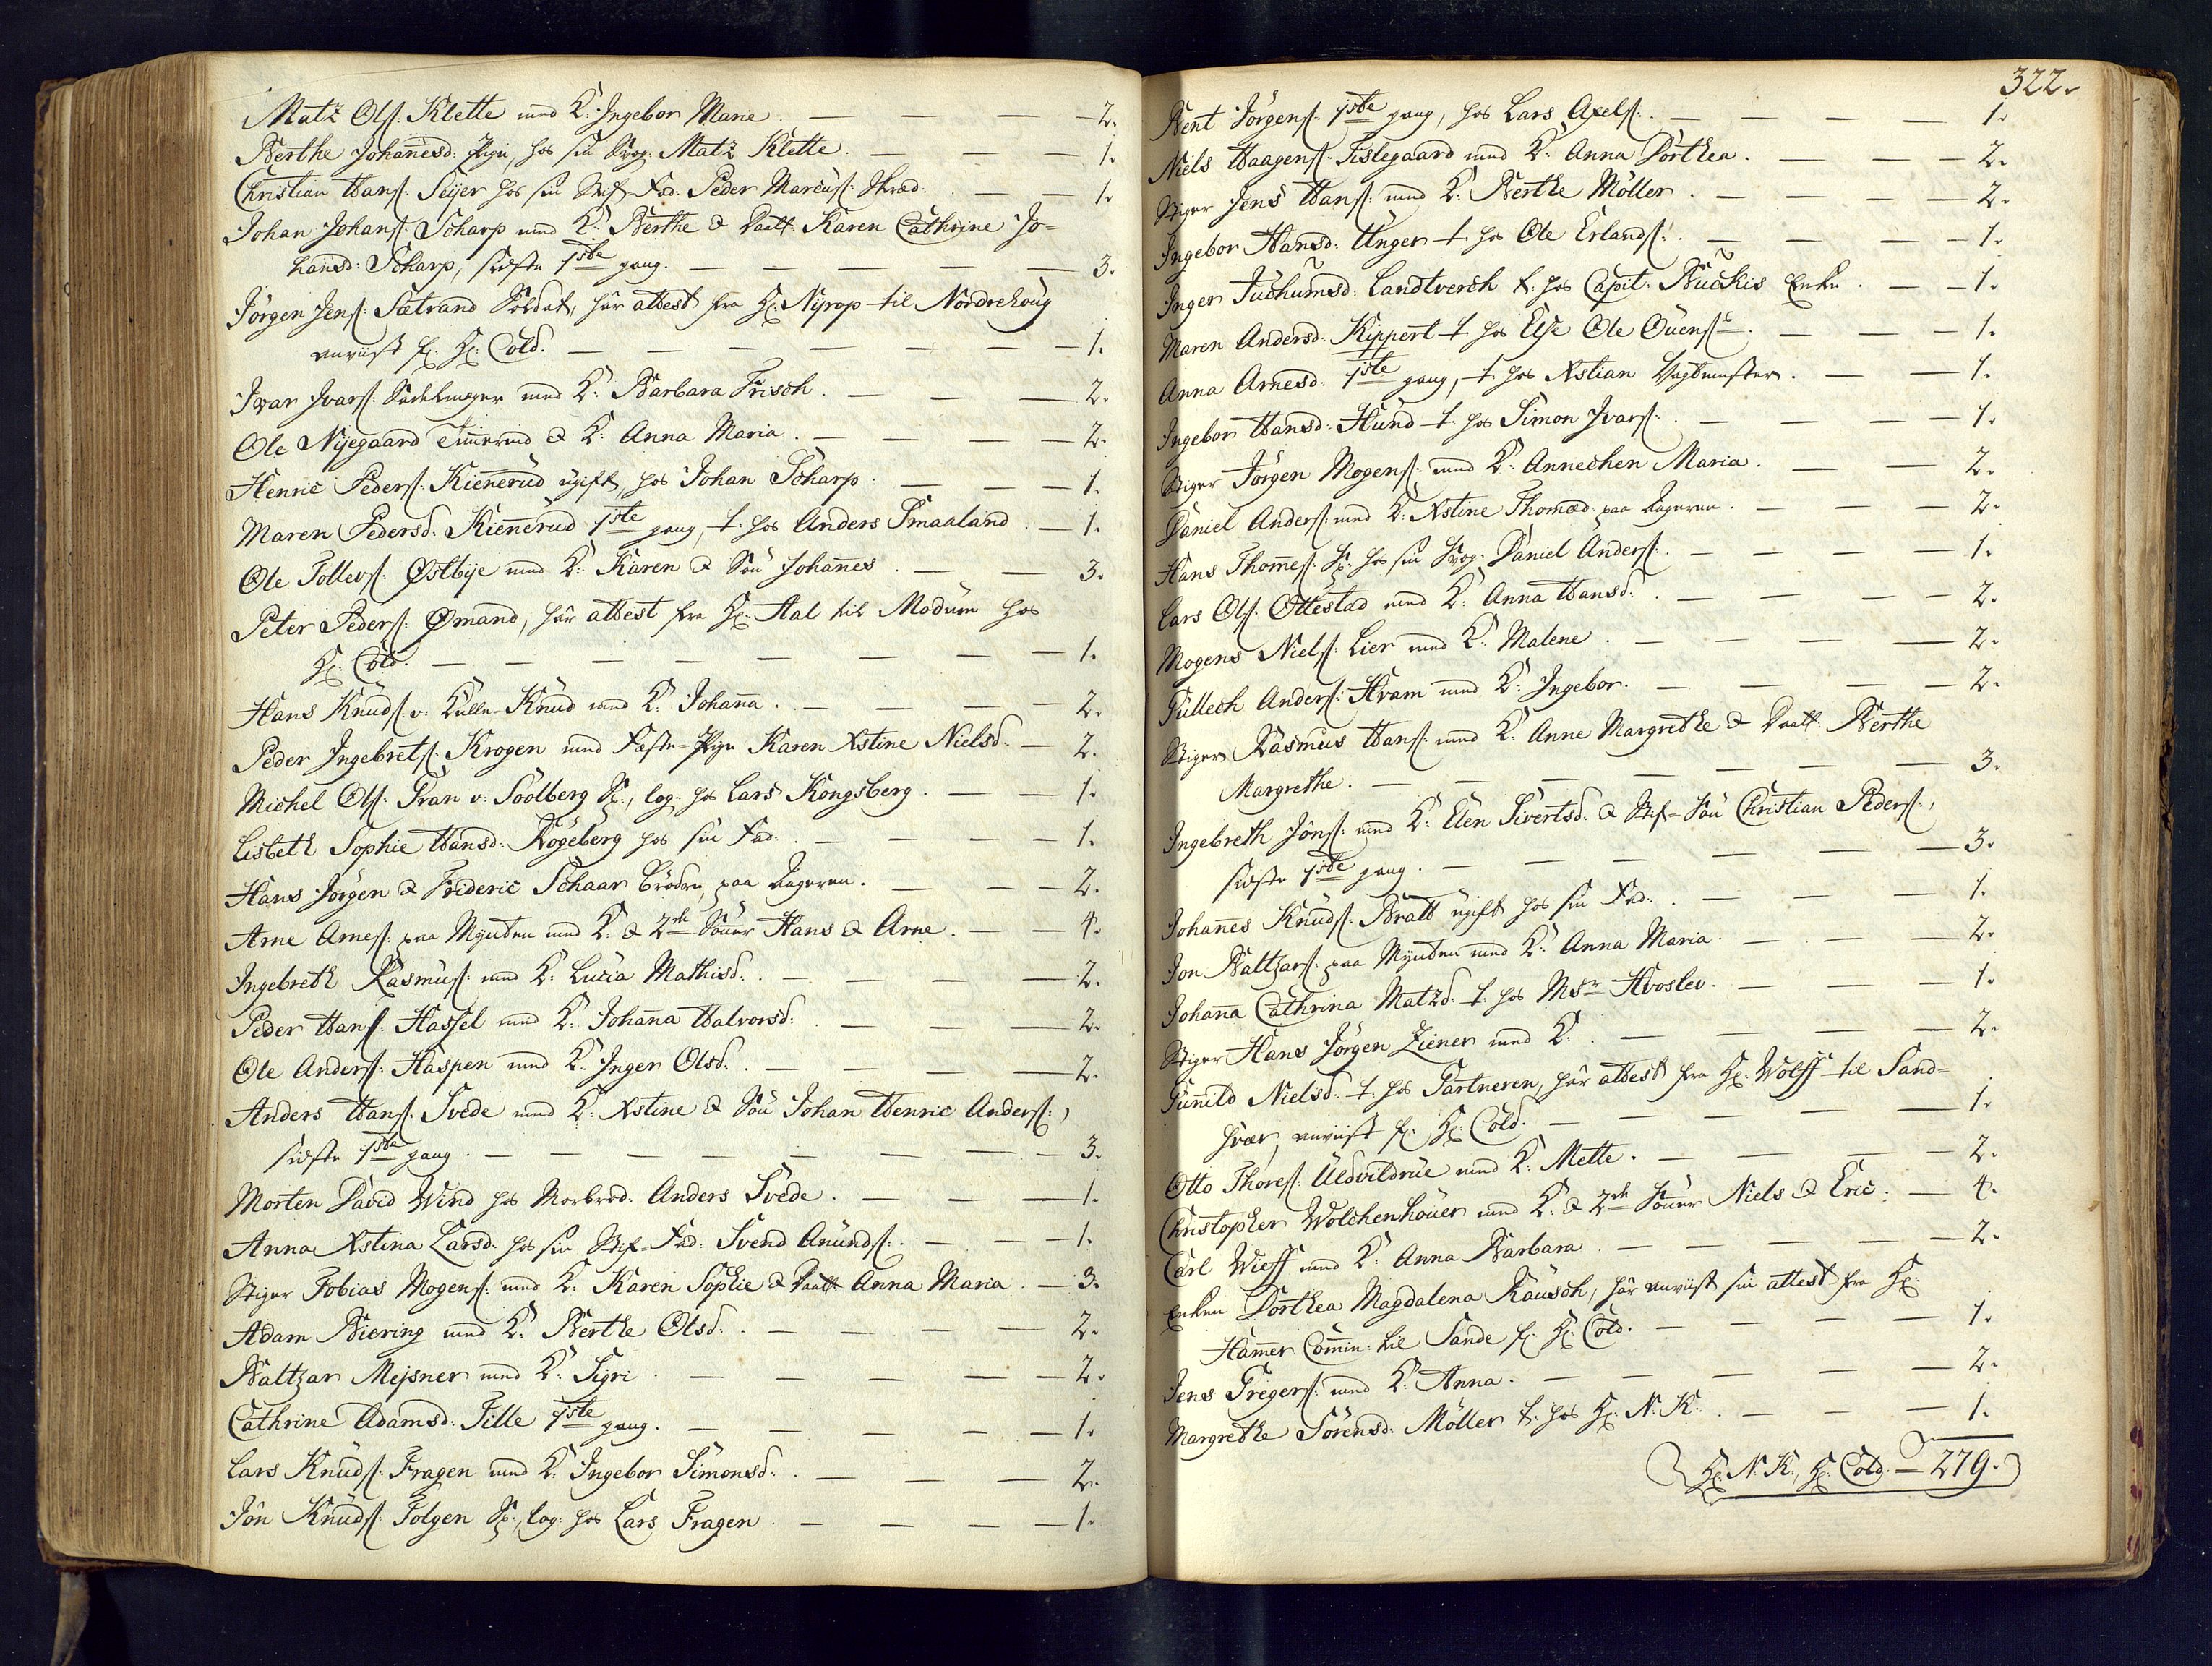 Matz Ols: Klette med K: Ingebor Marie. — — — — 2.
Berthe Johanesd: Pige, hos sin Svog: Matz Klette. — — — 1.
Christian Hans: Seijer hos sin Stif-Fad: Peder Marcus: — — 1.
Johan Johans: Scharp med K: Berthe & Daatt: Karen Cathrine Jo=
hansd: Scharp, sidste 1ste gang. — — — — — 3.
Jörgen Jens: Sætrand Soldat, hâr attest fra H: Nyrop til Nordrehoug
anviist f: H: Cold. — — — — — — 1.
Iwar Ivars: Sadelmager med K: Barbara Frisch. — — — 2.
Ole Nijegaard & K: Anna Maria. — — — 2.
Henric Peders: Kienerud ugift, hos Johan Scharp. — — — 1.
Maren Pedersd: Kienerud 1ste gang, t. hos Anders Smaaland. — 1.
Ole Tollevs: Østbije med K: Karen & Sön Johanes. — — 3.
Peter Peders: Ømand, hâr attest fra H: Aal til Modum hos
H: Cold. — — — — — — — 1.
Hans Knuds: v: Knud med K: Johana. — — — — 2.
Peder Ingebrets: Krogen med Fæste-Pige Karen Xstine Nielsd: — 2.
Michel Ols: Tran v: Soolberg S:, log: hos Lars Kongsberg. — — 1.
Lisbeth Sophie Hansd: Kögeberg hos sin Fad: — — — — 1.
Hans Jörgen & Frideric Schaar Brödre, paa Lageren. — — — 2.
Arne Arnes: paa Mynten med K: & 2de Sönner Hans & Arne. — — 4.
Ingebreth Rasmus: med K: Lucia Mathisd: — — — — 2.
Peder Hans: Hassel med K: Johana Halvorsd: — — — 2.
Ole Anders: Haspen med K: Inger Olsd: — — — — 2.
Anders Hans: Svede med K: Xstine & Sön Johan Henric Anders:,
sidste 1ste gang. — — — — — — — 3.
Morten David Wind hos Morbrod: Anders Svede. — — — 1.
Anna Xstina Larsd: hos sin Stif-Fad: Svend Anunds: — — 1.
Stiger Tobias Mogens: med K: Karen Sophie & Daatt: Anna Maria. — 3.
Adam Biering med K: Berthe Olsd: — — — — 2.
Baltzar Mejsner med K: Sigri. — — — — — 2.
Cathrine Adamsd: Tille 1ste gang. — — — — — 1.
Lars Knuds: Fragen med K: Ingebor Simonsd: — — — 2.
Jön Knuds: Folgen S:, log: hos Lars Fragen. — — — — 1.
322.
Bent Jörgens: 1ste gang, hos Lars Axels: — — — — 1.
Niels Haagens: Fislegaard med K: Anna Dorthea. — — — 2.
Stiger Jens Hans: med K: Berthe Möller. — — — — 2.
Ingebor Hansd: Unger t. hos Ole Erlands: — — — — 1.
Inger Juchumsd: Landtverch t: hos Capit: Buckis Enke. — — 1.
Maren Andersd: Kippert t. hos Else Ole Ouens: — — — 1.
Anna Arnesd: 1ste gang, t. hos Xstian Vagtmester. — — 1.
Ingebor Hansd: Hund t. hos Simon Ivars: — — — 1.
Stiger Jörgen Mogens: med K: Annechen Maria. — — — 2.
Daniel Anders: med K: Xstine Thomæd: paa Lageren. — — — 2.
Hans Thomes: S: hos sin Svog: Daniel Anders: — — — — 1.
Lars Ols: Ottestad med K: Anna Hansd: — — — — 2.
Mogens Niels: Lier med K: Malene. — — — — 2.
Gullech Anders: Hvam med K: Ingebor. — — — — 2.
Stiger Rasmus Hans: med K: Anne Margrethe & Daatt: Berthe
Margrethe. — — — — — — — 3.
Ingebreth Jöns: med K: Elen Sivertsd: & Stif-Sön Christian Peders:,
sidste 1ste gang. — — — — — — 3.
Johanes Knuds: Bratt ugift hos sin Fad: — — — — 1.
Jon Baltzars: paa Mynten med K: Anna Maria. — — — 2.
Johana Cathrina Matzd: t. hos Msr Hvoslev. — — — 1.
Stiger Hans Jörgen Ziener med K: — — — — 2.
Gunild Nielsd: t. hos Gartneren, hâr attest fra H: Wolff til Sand=
sver, anviist f: H: Cold. — — — — — 1.
Otto Thores: Uedvildrue med K: Mette. — — — — 2.
Christopher Wolchenhouer med K: & 2de Sönner Niels & Eric: — 4.
Carl Wieff med K: Anna Barbara. — — — — — 2.
Enken Dorthea Magdalena Rausch, hâr anviist sin attest fra H:
Hamer Comin: til Sande f: H: Cold. — — — — 1.
Jens Gregers: med K: Anna. — — — — — 2.
Margrethe Sörensd: Möller t: hos H: N: K: — — — — 1.
H: N: K:, H: Cold. — 279.